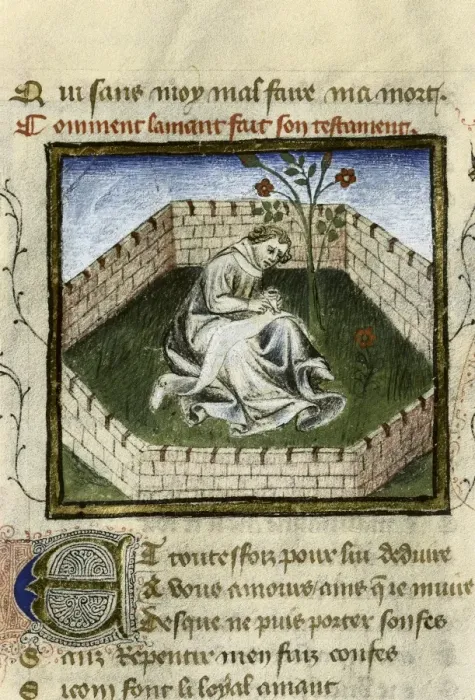 Qui sans moy mal faire ma mort.
Comment lamant fait son testament.
ET toutesfoiz pour lui deduire
A vous amours / ains q̄ ie muire
Desque ne puis porter son fes
Sanz Repentir men faiz confes
Sicom font li loyal amant